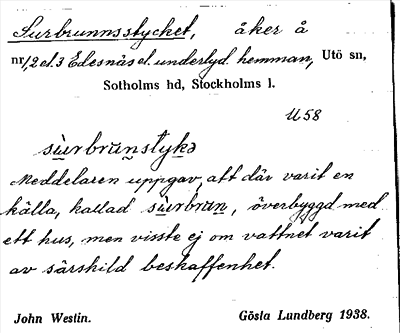 Surbrunnsstycket, åker å
nr 1, 2 o. 3 Edesnäs d. underlyd. hemman, Utö sn,
Sotholms hd, Stockholms l.
U 58
sùrbrunstykə
Meddelaren uppgav, att där varit en
källa, kallad sùrbrun, överbyggd med
ett hus, men visste ej om vattnet varit
av särskild beskaffenhet.
John Westin. Gösta Lundberg 1938.